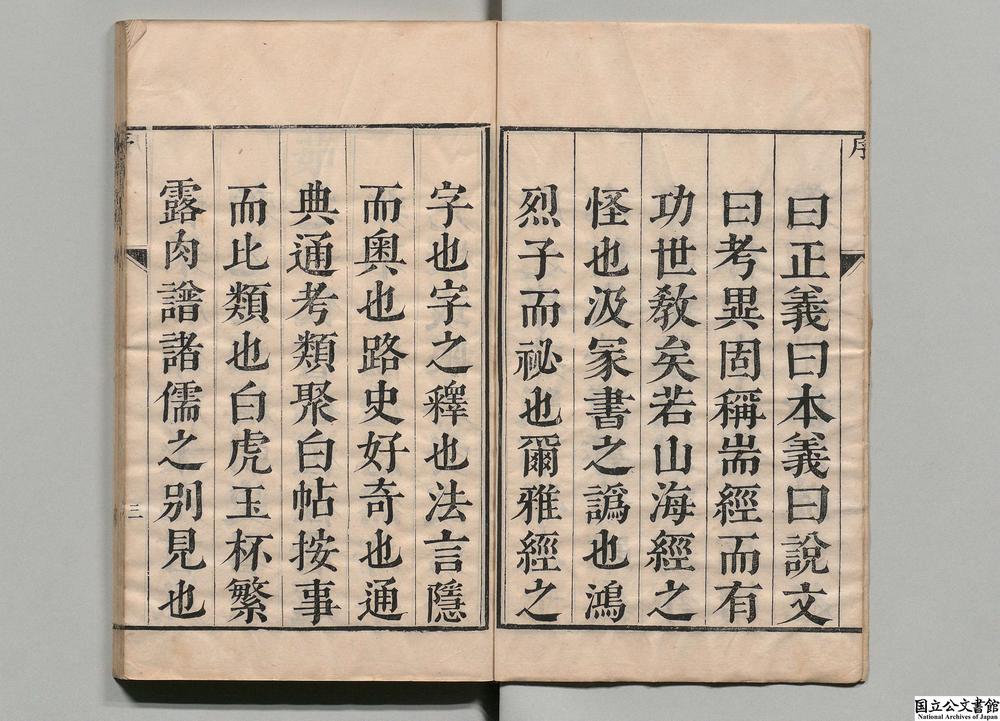 序
曰正義曰本義曰說文
曰考異固稱耑經而有
功世敎矣若山海經之
怪也汲冢書之譌也鴻
烈子而祕也爾雅經之
字也字之釋也法言隱
而奧也路史好奇也通
典通考類聚白帖按事
而比類也白虎玉杯繁
露肉譜諸儒之别見也
三
国立公文書館
National Archives of Japan